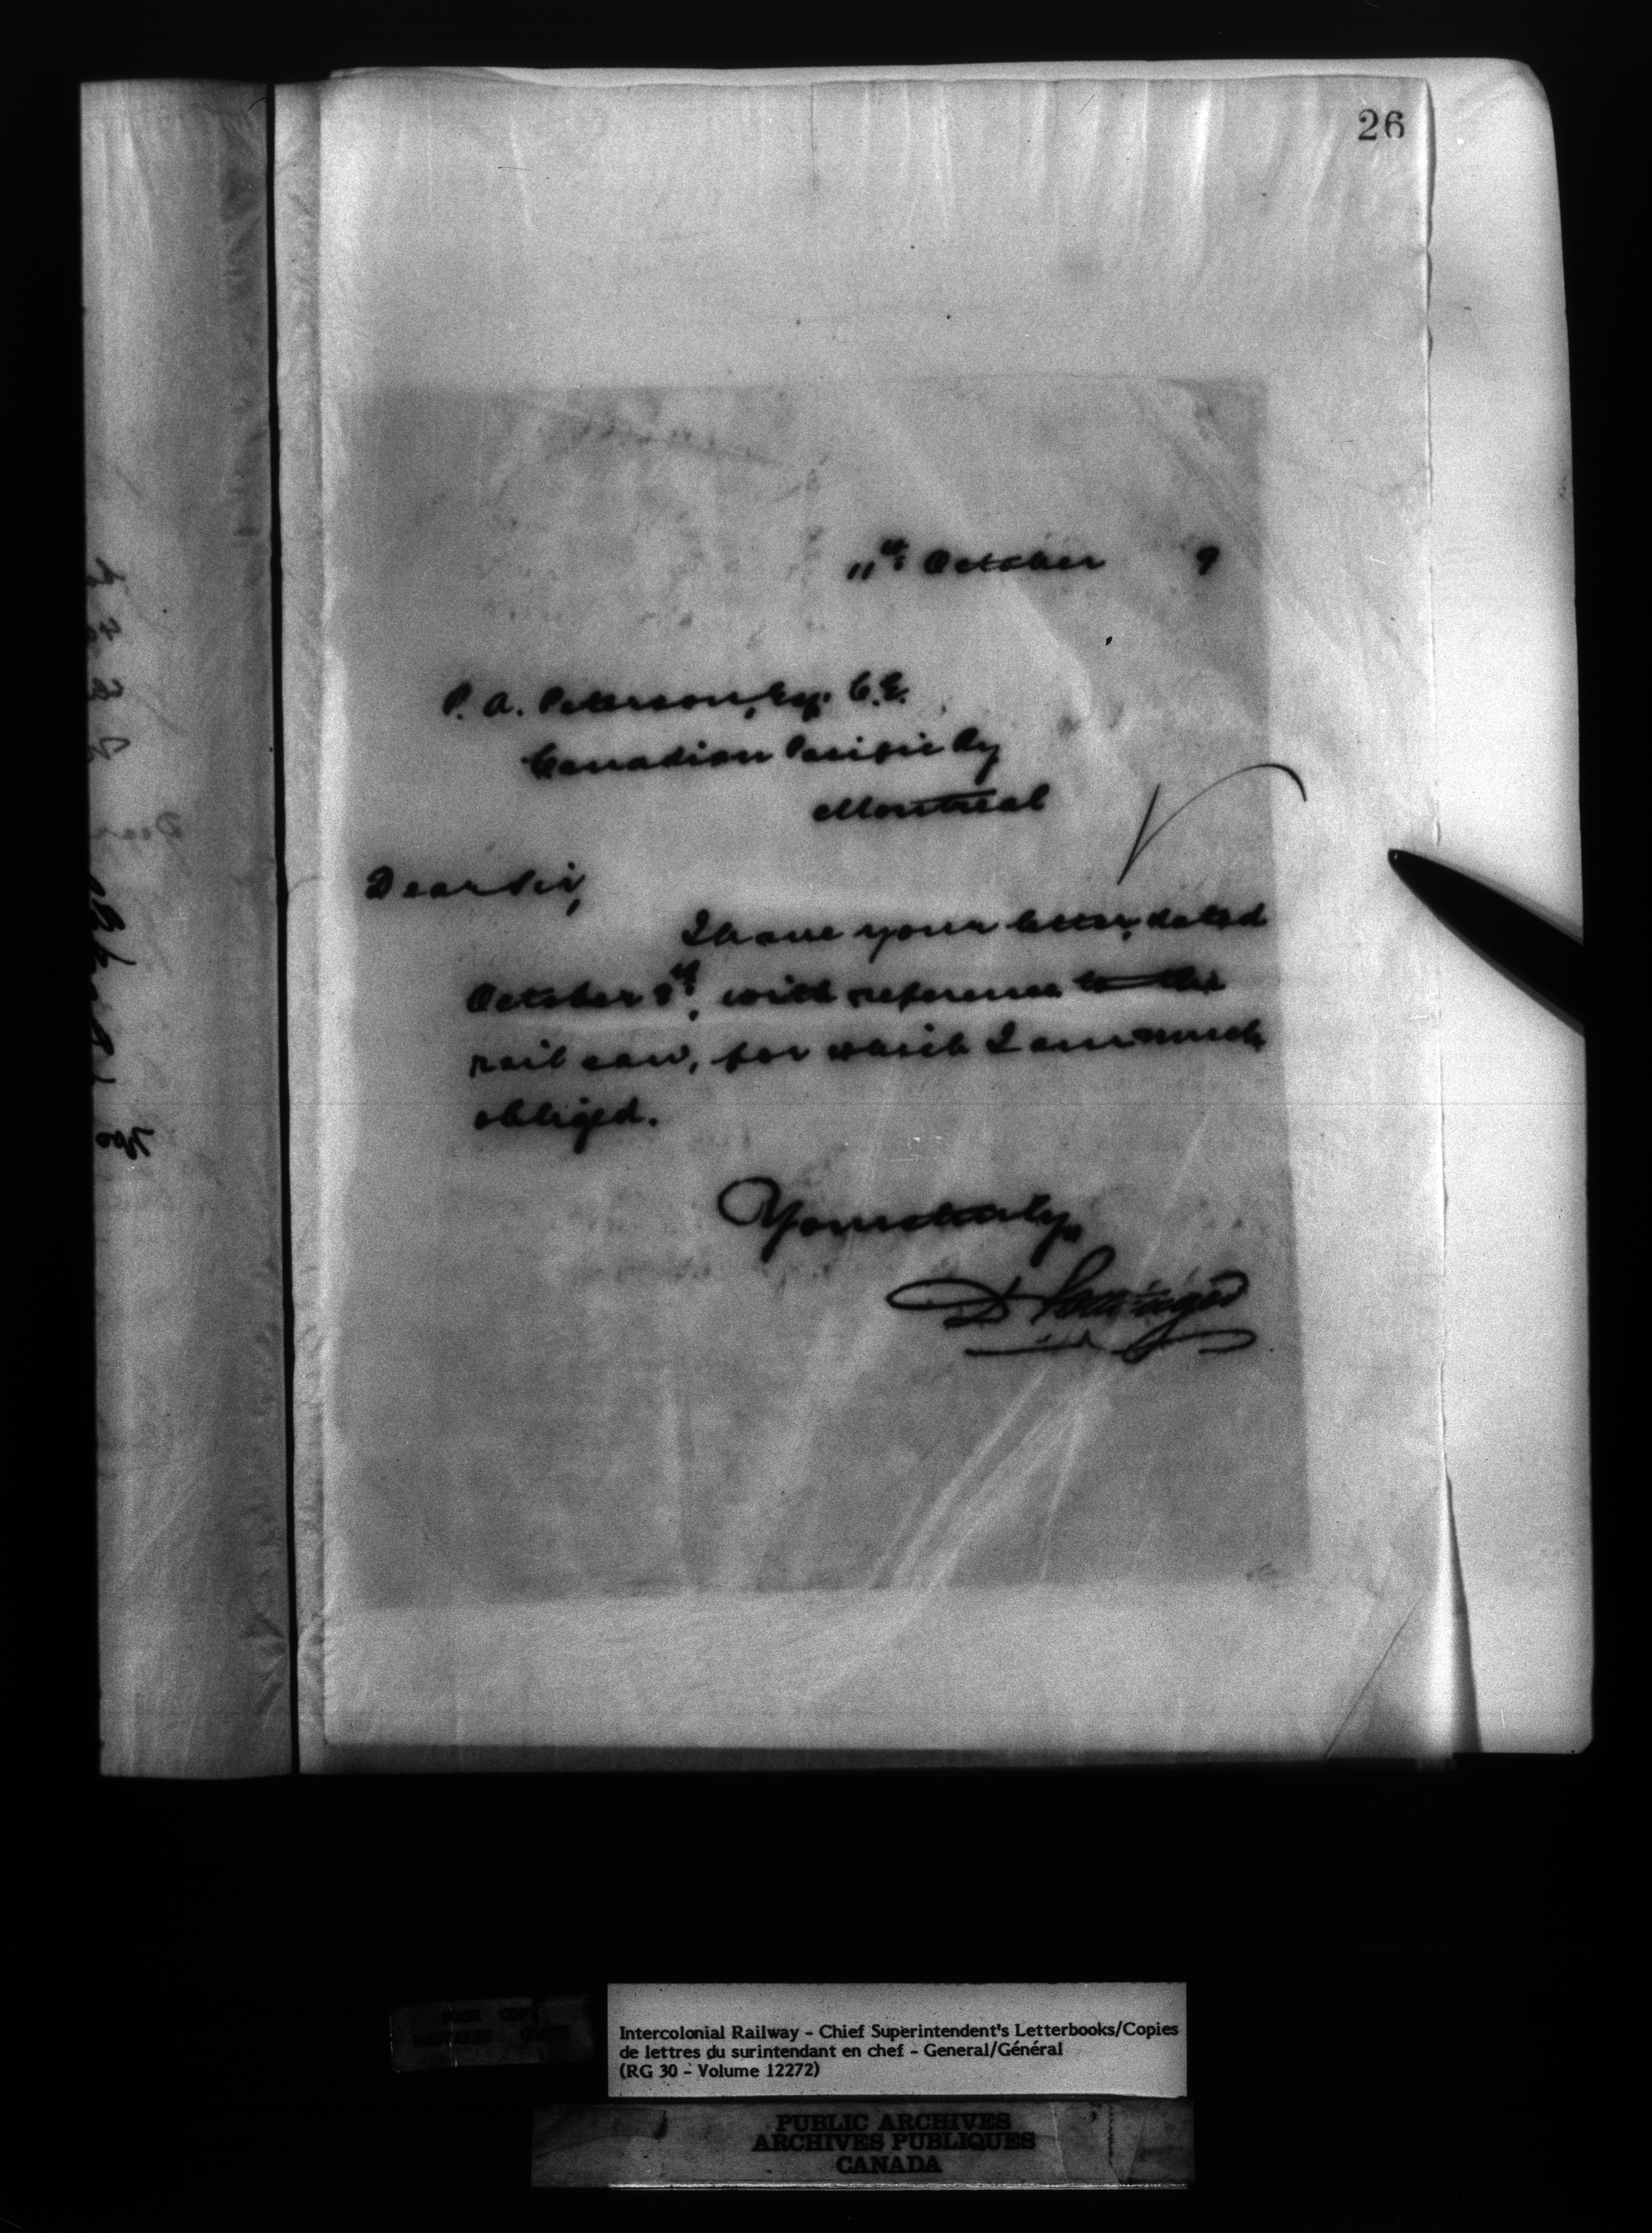 26
11th October 9
P. A. Peterson, Esq. C.E.
Canadian Pacific Ry
Montreal
Dear Sir,
I have your letter, dated
October 8th, with reference to the
rail saw, for which I am much
obliged.
Yours truly,
D Pottinger
POOR COPY
Intercolonial Railway - Chief Superintendent's Letterbooks/Copies
de lettres du surintendant en chef - General/Général
(RG 30 - Volume 12272)
PUBLIC ARCHIVES
ARCHIVES PUBLIQUES
CANADA